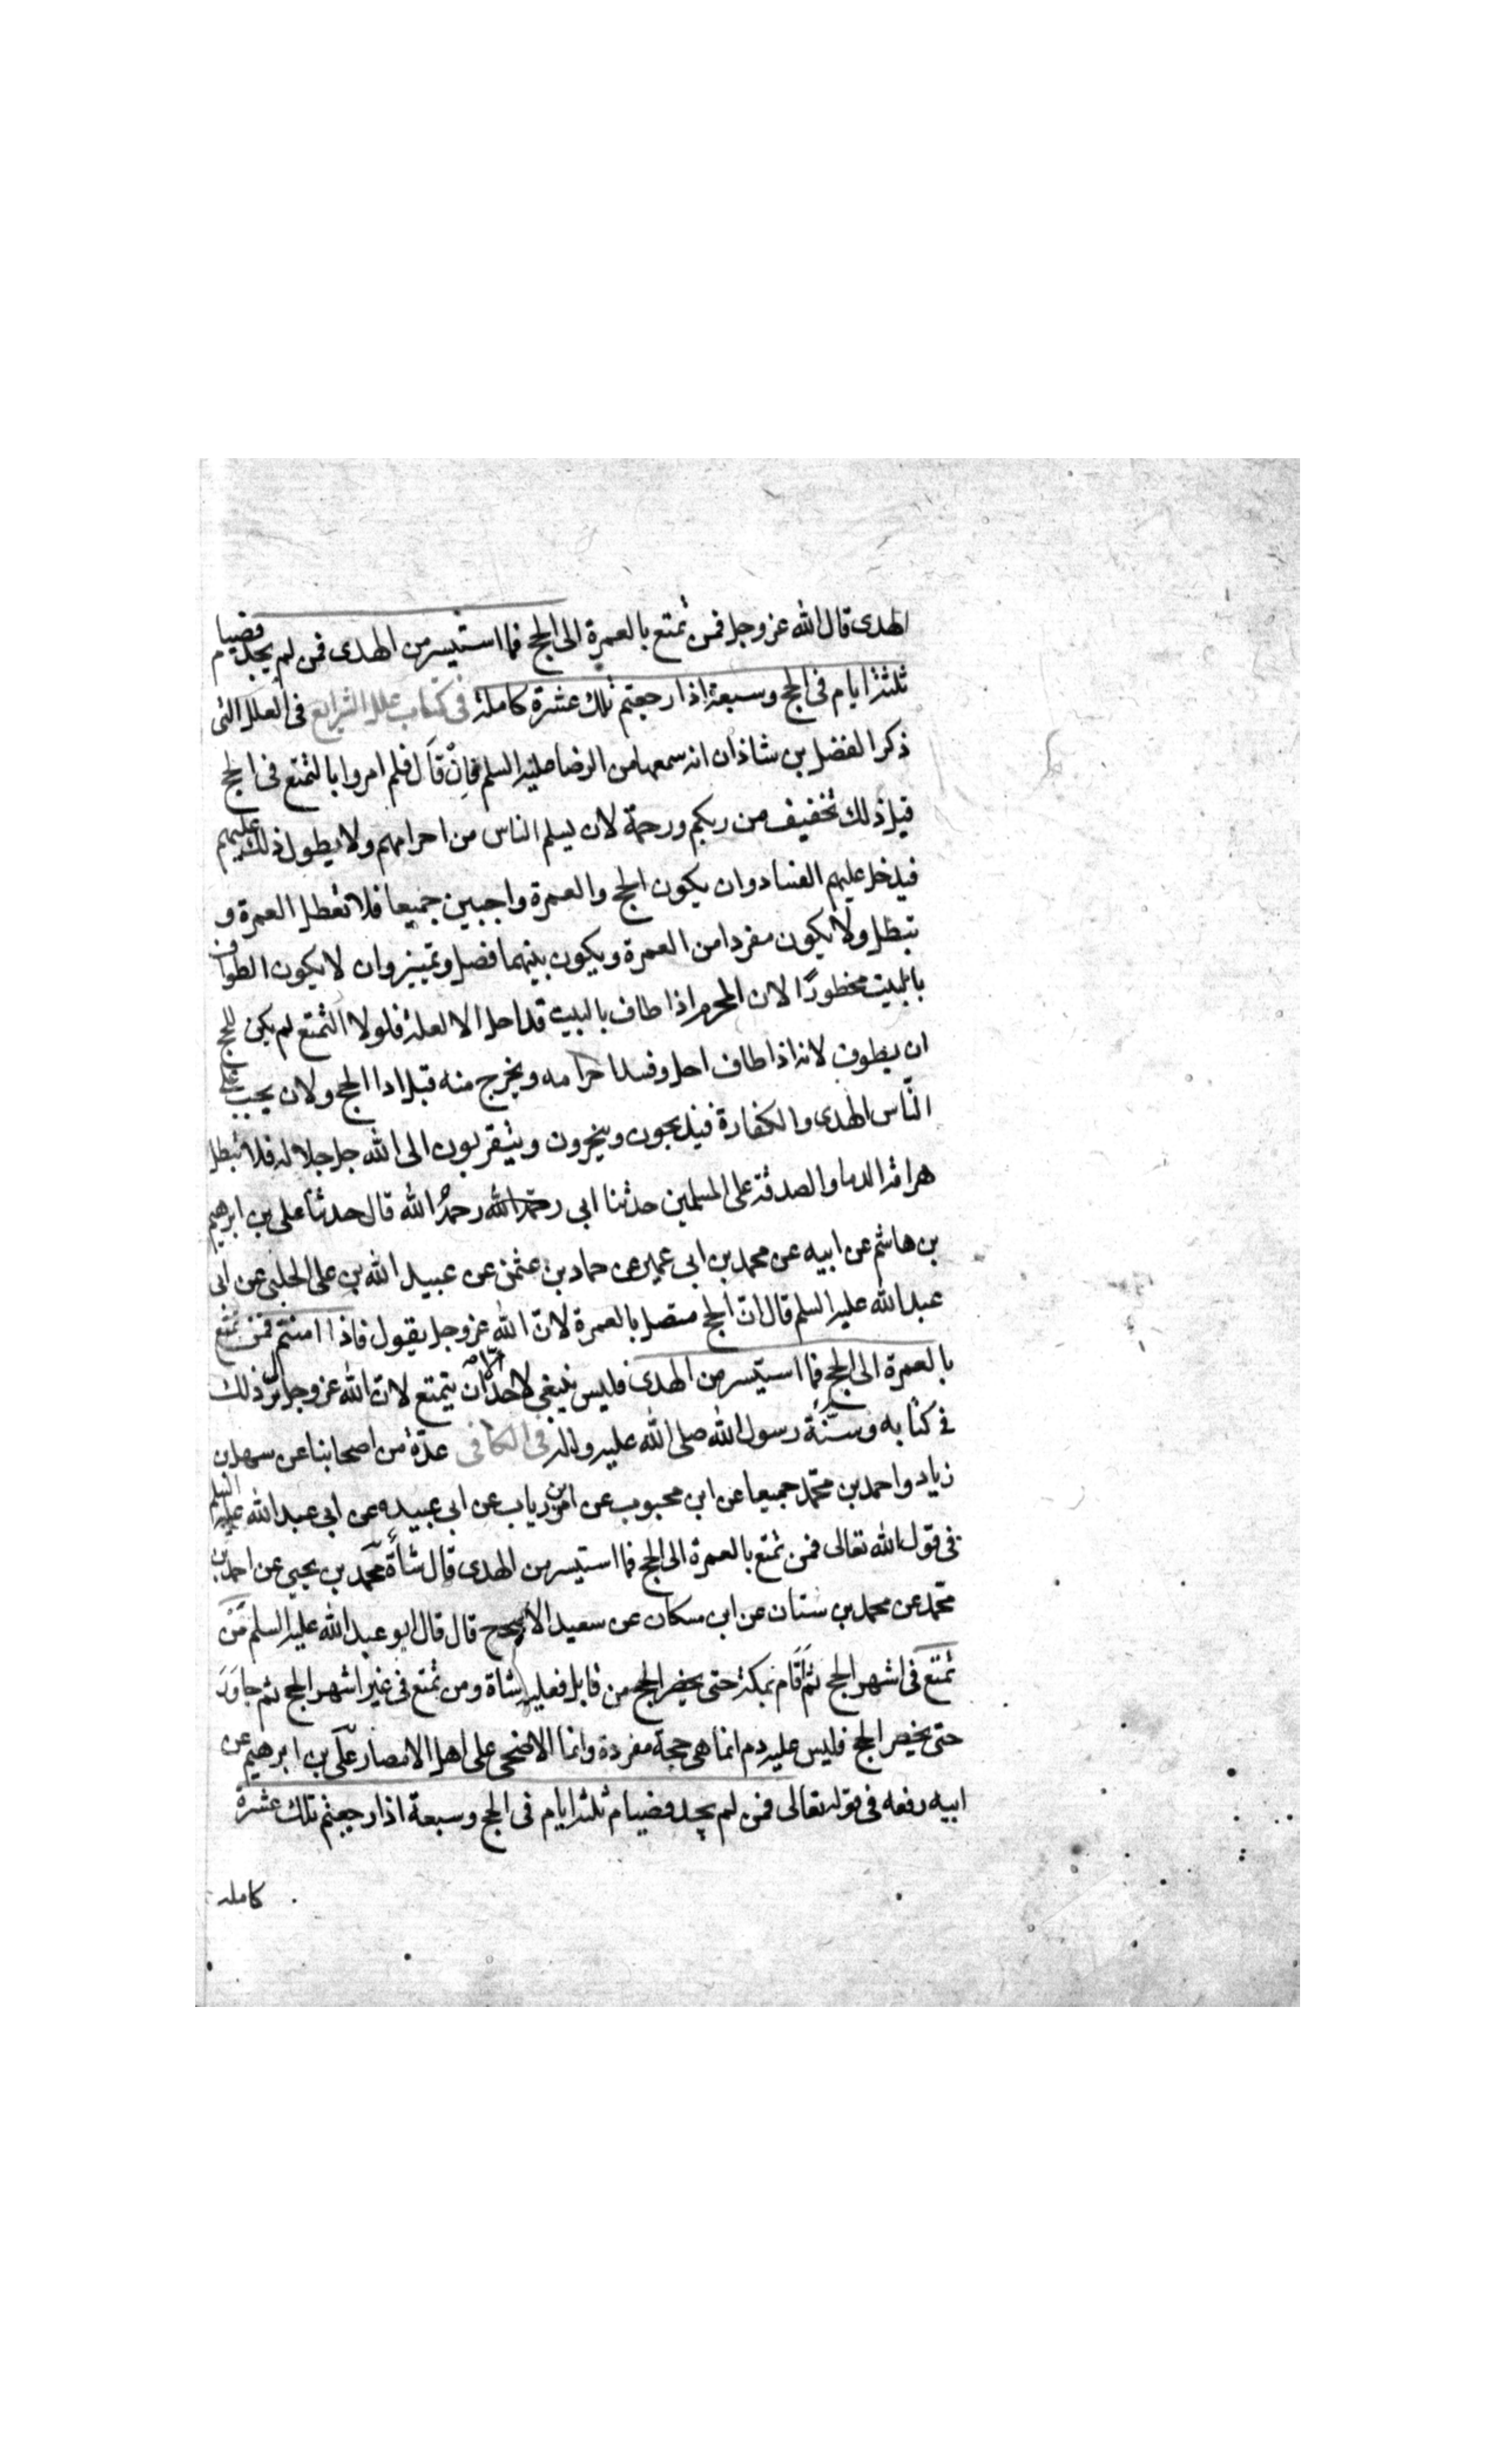 الهدى قال الله عز وجل فمن تمتع بالعمرة الى الحج فما استيسر من الهدى فمن لم يجد فصيام
ثلثة ايام فى الحج وسبعة اذا رجعتم تلك عشرة كاملة فى كتاب علل الشرايع فى العلل التى
ذكر الفضل بن شاذان انه سمعها من الرضا عليه السلم فان قال فلم امروا بالتمتع فى الحج
قيل ذلك تخفيف من ربكم ورحمة لان يسلم الناس من احرامهم ولا يطول ذلك عليهم
فيدخل عليهم الفساد وان يكون الحج والعمرة واجبين جميعا فلا تعطل العمرة و
تبطل ولا يكون مفردا من العمرة ويكون بينهما فصل وتمييز وان لا يكون الطواف
بالبيت محظورًا لان المحرم اذا طاف بالبيت قد احل الا لعلة فلولا التمتع لم يكن للحج
ان يطوف لانه اذا طاف احل وفسد احرامه ويخرج منه قبل ادا الحج ولان يجب على
النّاس الهدى والكفارة فيذبحون وينحرون ويتقربون الى الله جل جلاله فلا تبطل
هراقة الدماء والصدقة على المسلمين حدثنا ابى رحمه الله رحمهُ الله قال حدثنا على بن ابرهيم
بن هاشم عن ابيه عن محمد بن ابى عمير عن حماد بن عثمن عن عبيد الله بن على الحلبى عن ابى
عبد الله عليه السلم قال انّ الحج متصل بالعمرة لانّ الله عز وجل يقول فاذا امنتم فمن تمتع
بالعمرة الى الحج فما استيسر من الهدى فليس ينبغى لاحد الّا ان يتمتع لانّ الله عز وجل انزل ذلك
فى كتابه وسنّة رسول الله صلى الله عليه واله فى الكافى عدّة من اصحابنا عن سهل بن
زياد واحمد بن محمّد جميعا عن ابن محبوب عن بن رياب عن ابى عبيده عن ابى عبد الله عليه السلم
فى قول الله تعالى فمن تمتع بالعمرة الى الحج فما استيسر من الهدى قال شاة محمّد بن يحيى عن احمد بن
محمّد عن محمد بن سنان عن ابن مسكان عن سعيد الاعرج قال قال ابو عبد الله عليه السلم مَن
تمتع فى اشهر الحج ثم اقام بمكة حتى يحضر الحج من قابل فعليه شاة ومن تمتع فى غير اشهر الحج ثم جاور
حتى يحضر الحج فليس عليه دم انما هى حجة مفردة وانما الاضحى على اهل الامصار علّى بن ابرهيم عن
ابيه رفعه فى قوله تعالى فمن لم يجد فصيام ثلثة ايام فى الحج وسبعة اذا رجعتم تلك عشرة
كاملة